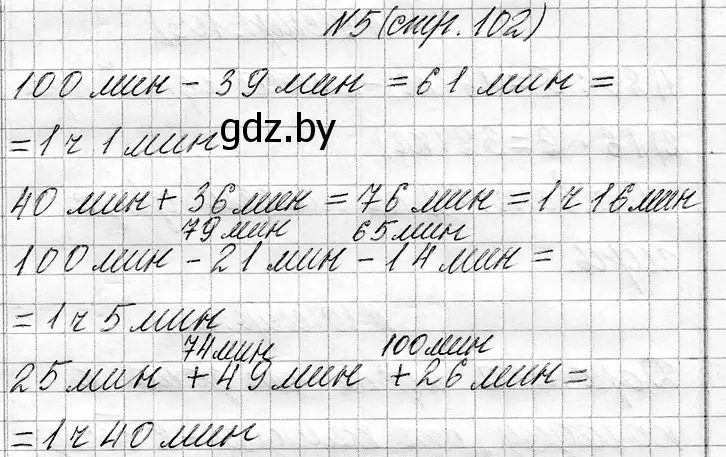 №5 (стр. 102)
100 мин - 39 мин = 61 мин =
= 1 ч 1 мин
gdz.by
40 мин + 36 мин = 76 мин = 1 ч 16 мин
79 мин 65 мин
100 мин - 21 мин - 14 мин =
= 1 ч 5 мин
74 мин 100 мин
25 мин + 49 мин + 26 мин =
= 1 ч 40 мин